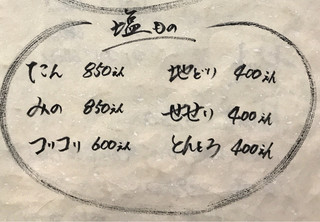 塩もの
たん 850えん 地どり 400えん
みの 850えん せせり 400えん
コリコリ 600えん とんとろ 400えん